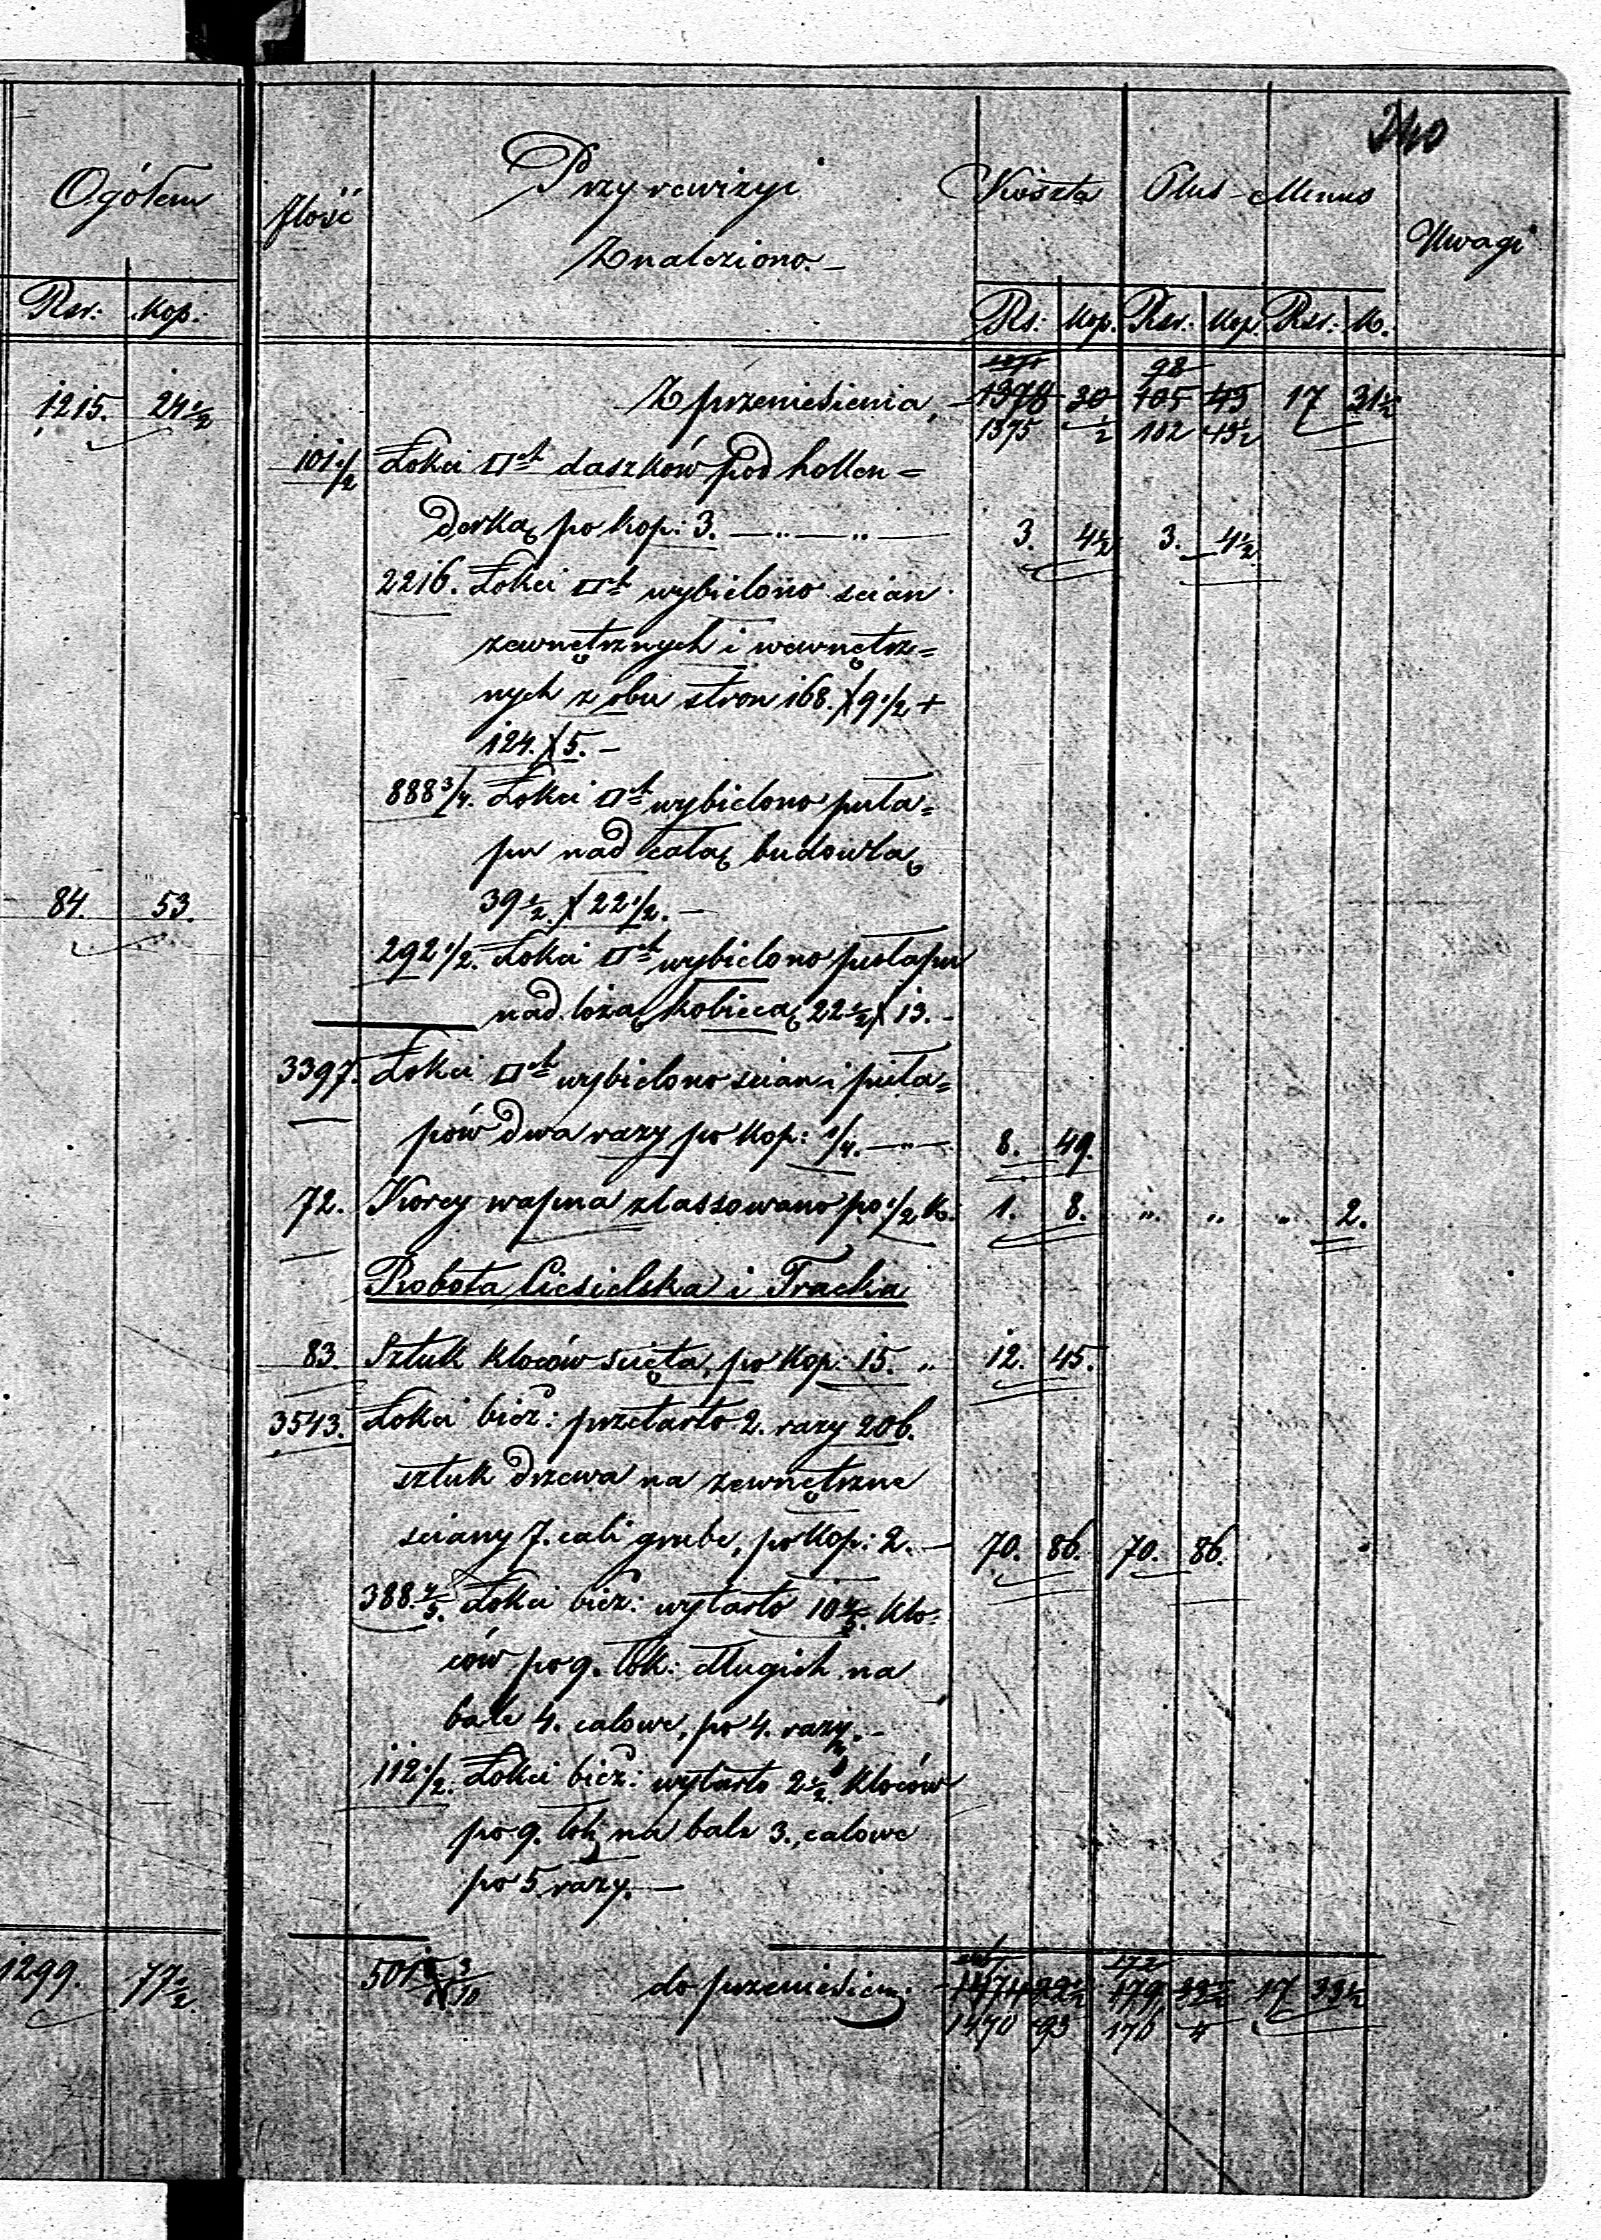 240
Ogółem
Rsr: Kop:
1215. 24 1/2
84. 53.
1299. 77 1/2
Ilość Przy rewizyi Znaleziono.— Koszta Plus Minus Uwagi
Rs: Kop. Rsr: Kop. Rsr: K.
98
Z przeniesienia 1378 30 105 43 17 31 1/2
1375 1/2 102 43 1/2
101 1/2 Łokci □ch daszków pod hollen=
derką po kop: 3. — „ — „ — 3. 4 1/2 3. 4 1/2
2216. Łokci □ch wybielono ścian
zewnętrznych i wewnętrz=
nych z obu stron 168. X 9 1/2 +
124. X 5. —
888 3/4. Łokci □ch wybielono puła=
pu nad całą budowlą
39 1/2. X 22 1/2. —
292 1/2. Łokci □ch wybielono pułapu
nad lożą kobiecą 22 1/2 X 13. —
3397. Łokci □ch wybielono ścian i puła=
pów dwa razy po kop: 1/4. — „ — 8. 49.
72. Korcy wapna zlassowano po 1/2 K. 1. 8. „ „ „ 2.
Robota Ciesielska i Tracka
83. Sztuk kloców ścięta, po kop: 15. „ 12. 45.
3543. Łokci bież: przetarto 2. razy 206.
sztuk drzewa na zewnętrzne
ściany 7. cali grube, po kop: 2. — 70. 86. 70. 86.
388. 4/5. Łokci bież: wytarto 10 4/5. klo=
ców po 9. łok: długich na
bale 4. calowe, po 4. razy. —
112 1/2. Łokci bież: wytarto 2 1/2 kloców
po 9. łok na bale 3., calowe
po 5 razy. —
501 3/10 do przeniesien: 1474 22 1/2 179 32 1/2 17 33 1/2
1470 93 176 4